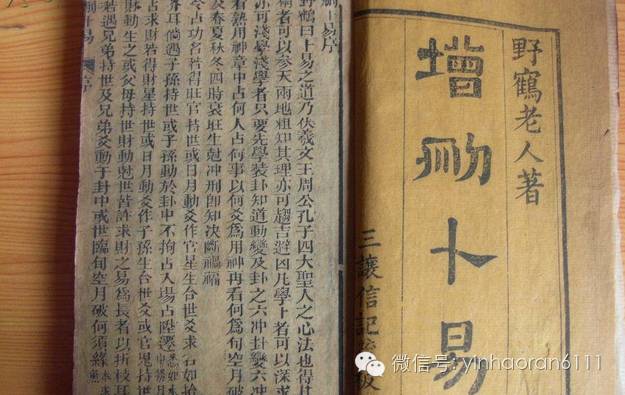 野鶴老人著
增刪卜易
三讓信記
刪卜易序
野鶴曰卜易之道乃伏羲文王周公孔子四大聖人之心法也得其
者可以參天兩地粗知其理亦可趨吉避凶凡學卜者可以深求
亦可淺學淺學者只要先學裝卦知道動變及卦之六冲卦變六冲
看熟用神章中占何人占何事以何爻為用神再看何為旬空月破
及春夏秋冬四時衰旺生尅冲刑即知決斷禍福
占功名若得旺官持世或日月動爻作官星生合世爻求名如拾
芥耳倘遇子孫持世或子孫動於卦中不拘占入塲占陞遷
占求財若得財星持世或日月動爻作子孫生合世爻或官鬼持世
財動生之或父母持世財動尅世皆許求財之易為長者以折枝耳
若遇兄弟持世及兄弟爻動于卦中或世臨旬空月破何須緣木
刪卜易 序
微信号:yinhaoran6111